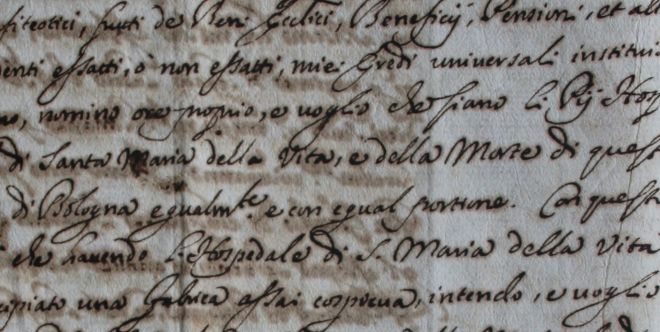 fiteotici, frutti de Beni Ecclici, Beneficij, Pensioni, et alt
enti essatti, o' non essatti, miei Eredi universali instituis
no, nomino ore proprio, e voglio che siano li Pij Hosp
di Santa Maria della Vita, e della Morte di quest
di Bologna egualmte e con egual portione. Con questo
che havendo l'Hospedale di S. Maria della Vita
cipiato una Fabrica assai cospicua, intendo, e voglio